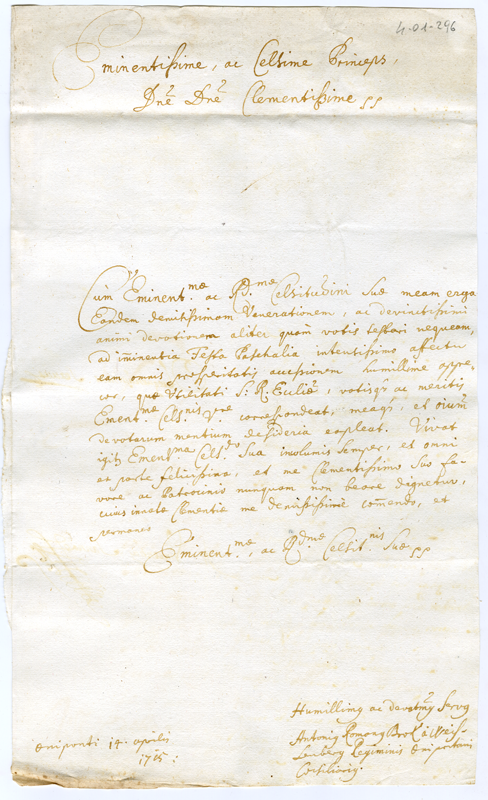 4-01-296
Eminentissime, ac Celsime Princeps,
Dne Dne Clementissime
Cùm Eminentmæ ac Rdmæ Celsitudini Suæ meam erga
Eandem devinctissimam Venerationem, ac devinctissimi
animi devotionem aliter quàm votis testari nequeam,
ad iminentia Festa Paschalia intentissimo affectu
eam omnis prosperitatis accessionem humillimè appre
cor, quæ Utilitati S: R. Eccliæ, votisq ac meritis
Ementmæ Celsnis Vræ correspondeat, meaq, et oium
devotarum mentium desideria expleat. Vivat
igitr Ementma Celsdo Sua incolumis semper, et omni
ex parte felicissima, et me Clementissimo Suo fa-
vore ac Patrocinio nunquam non beare dignetur,
cuius innatæ Clementiæ me devotissimè comendo, et
permaneo
Eminentmæ, ac Rdmæ Celsitnis Suæ
Humillimg ac devotmg Servg
Antonig
à Weiss-
Regiminis Oenipontani
Consiliarig.
Oeniponti 14. aprilis
1715.